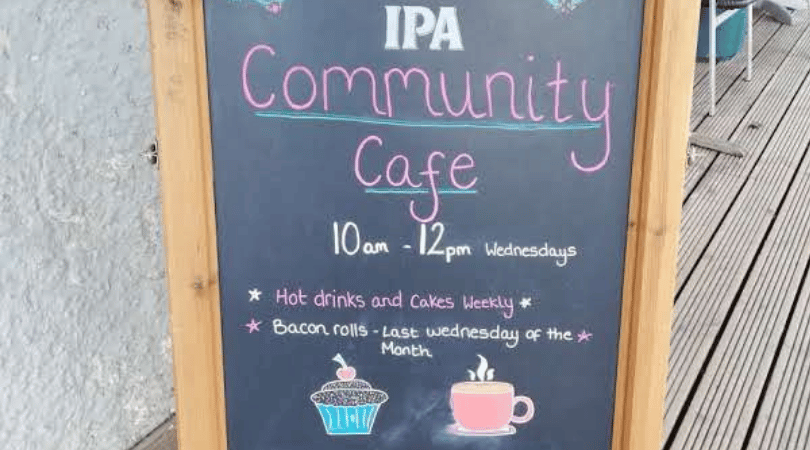 IPA
Community
Cafe
10am - 12pm Wednesdays
Hot drinks and Cakes Weekly
Bacon rolls - Last wednesday of the
Month